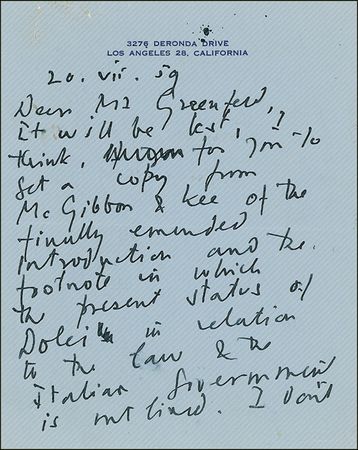 3276 DERONDA DRIVE
LOS ANGELES 28, CALIFORNIA
20. vii. 59
Dear Mr Greenfeld,
It will be best, I
think, for you to
get a copy from
McGibbon & Kee of the
finally emended
introduction and the
footnote in which
the present status of
Dolci in relation
to the law & the
Italian Government
is outlined. I don't